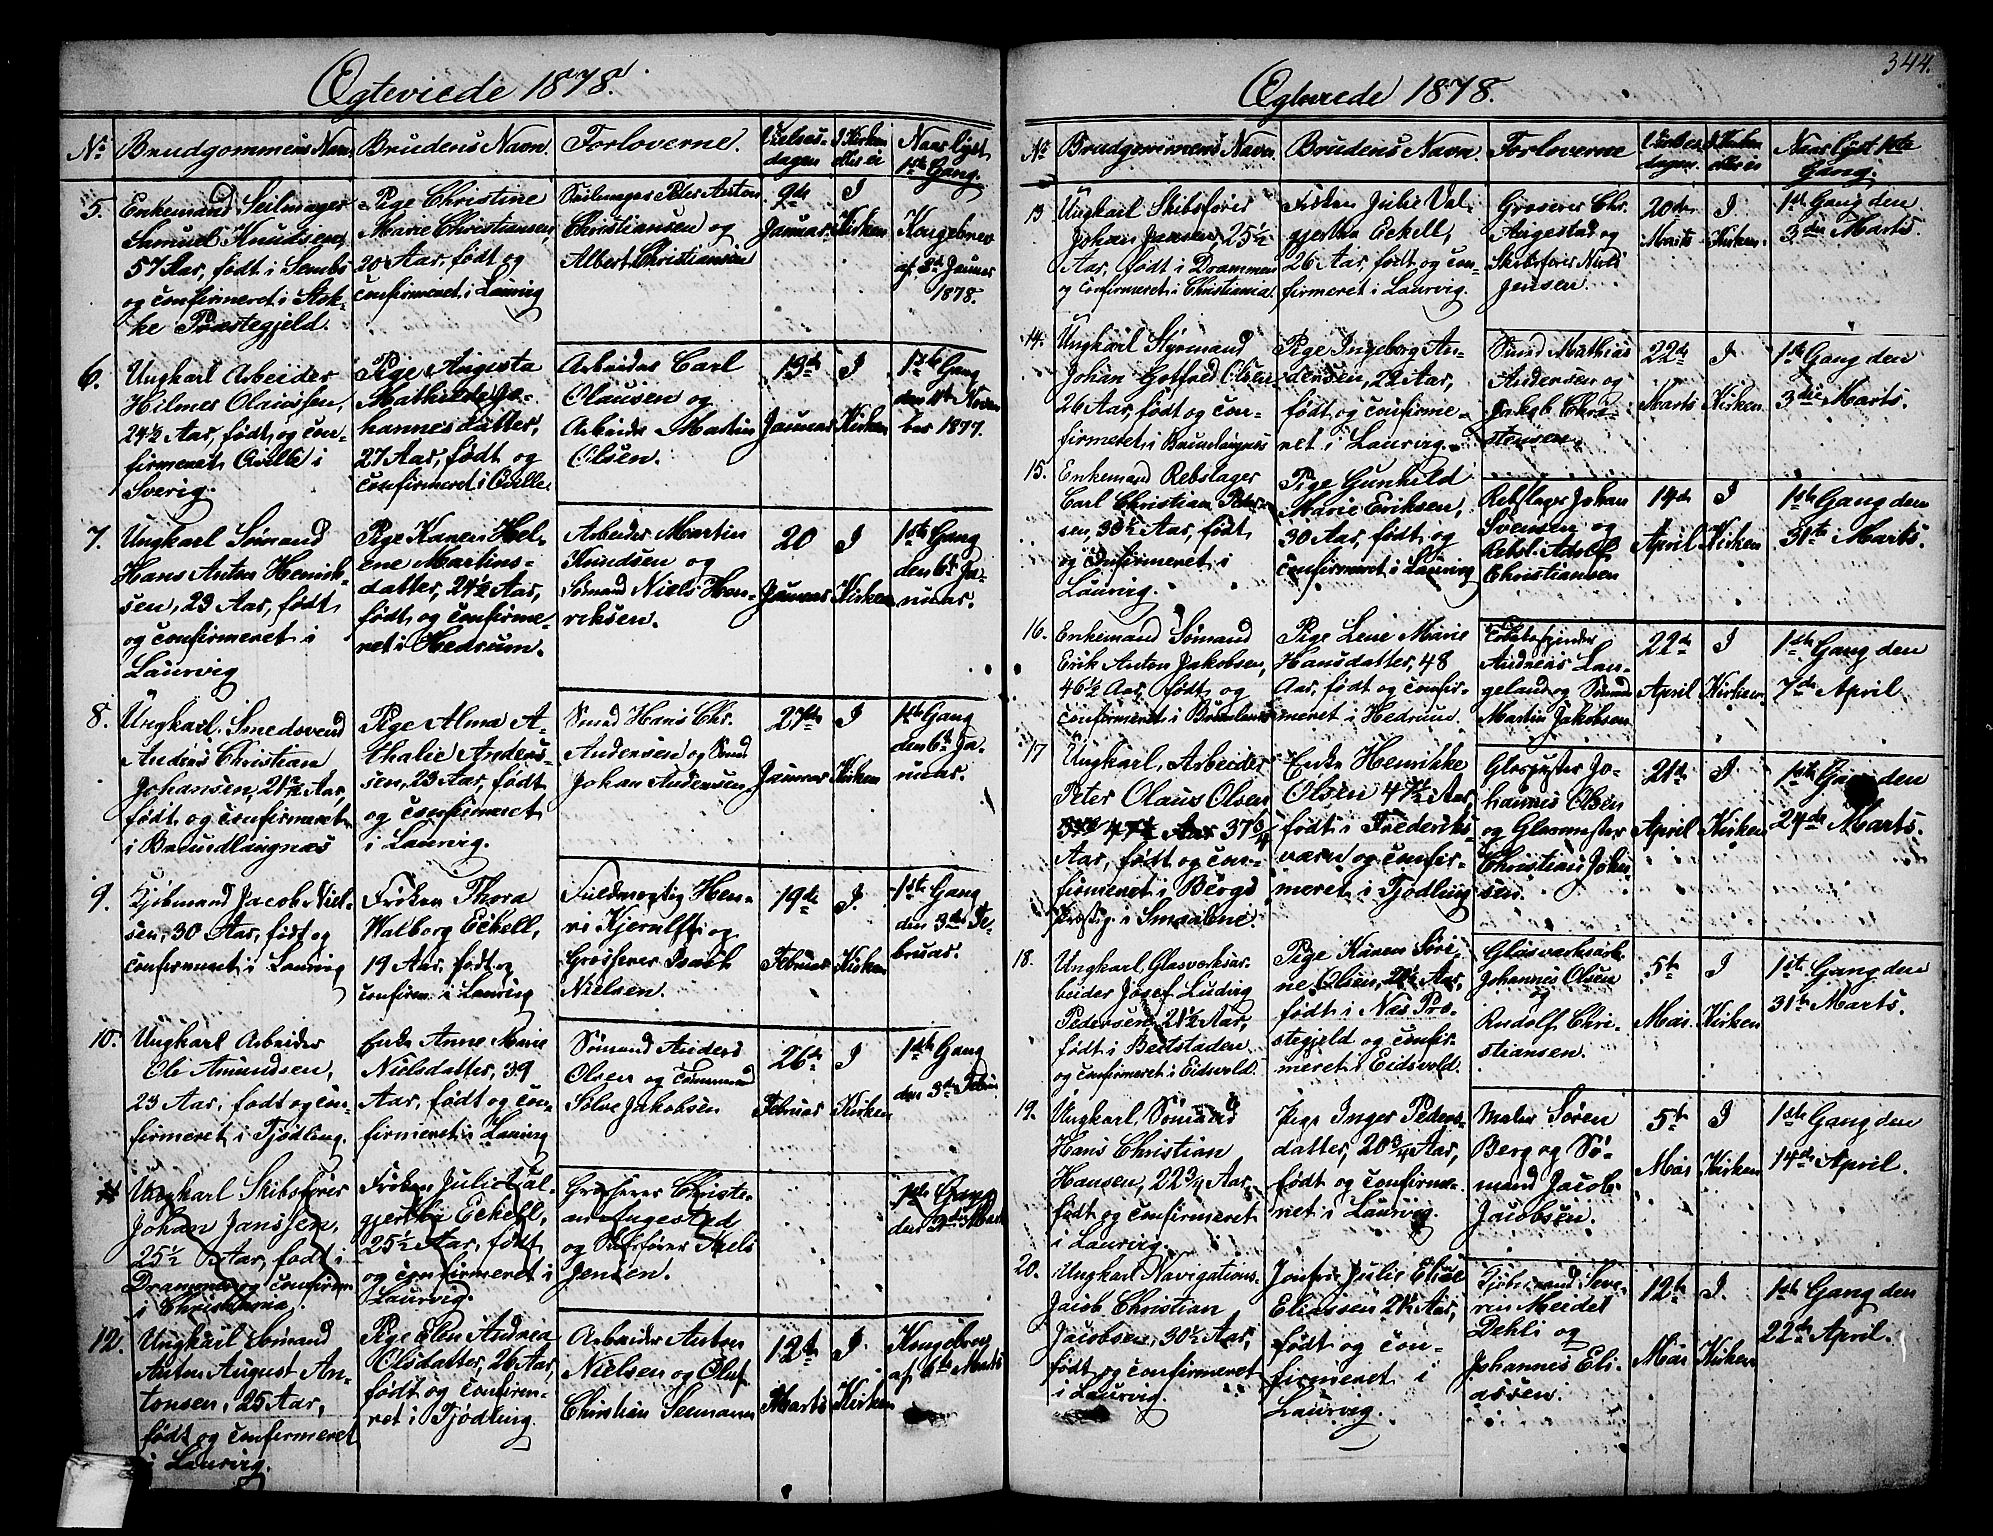 Ægteviede 1878.
No
Brudgommens Navn
Brudens Navn.
Forloverne.
Vielses-
dagen
I Kirken
eller ei
Naar lyst
1ste Gang.
5.
Enkemand Seilmager
Samuel Knudsen,
57 Aar, født i Sembs
og confirmeret i Stok-
ke Præstegjeld.
Pige Christine
Marie Christiansen,
20 Aar, født og
confirmeret i Laurvig
Seilmager Peter Anton
Christiansen og
Albert Christiansen
9de
Januar
I
Kirken
Kongebrev
af 3d Januar
1878.
6.
Ungkarl Arbeider
Hilmer Olaussen,
24½ Aar, født og con-
firmeret Qville i
Sverig.
Pige Augusta
Mathilde Jo-
hannesdatter,
27 Aar, født og
confirmeret i Qville.
Arbeider Carl
Clausen og
Arbeider Martin
Olsen.
13de
Januar
I
Kirken
1ste Gang
den Novem
ber 1877.
7.
Ungkarl Sømand
Hans Anton Henrik-
sen, 23 Aar, født
og confirmeret i
Laurvig
Pige Karen Hel-
ene Martins-
datter, 24½ Aar,
født og confirme-
ret i Hedrum.
Arbeider Martin
Knudsen og
Sømand Niels Hen-
riksen.
20
Januar
I
Kirken
1ste Gang
den 6te Ja-
nuar.
8.
Ungkarl Smedsvend
Anders Christian
Johansen, 21½ Aar,
født og confirmeret
i Brundlangnæs
Pige Alma A-
thalie Anders-
sen, 23 Aar, født
og confirmeret
i Laurvig.
Smed Hans Chr.
Andersen og Smed
Johan Andersen
27de
Januar
I
Kirken
1ste Gang
den 6te Ja-
nuar.
9.
Kjøbmand Jacob Niel-
sen, 30 Aar, født og
confirmeret i Laurvig
Frøken Thora
Walborg Eckell,
19 Aar, født og
confirm. i Laurvig
Fuldmægtig Hen-
ri Kjerulf og
Grosserer Isach
Nielsen.
19de
Februar
I.
Kirken
1ste Gang
den 3die Fe-
bruar.
10.
Ungkarl Arbeider
Ole Amundsen,
23 Aar, født og con-
firmeret i Tjødling.
Enke Anne Marie
Nielsdatter, 39
Aar, født og con-
firmeret i Laurvig
Sømand Anders
Olsen og Tømmermand
Sølve Jakobsen
26de
Februar
I
Kirken
1ste Gang
den 3die Febru
11
Ungkarl Skibsfører
Johan Janssen,
25½ Aar, født i
Drammen og confirm
i Christiania.
Frøken Julie Val-
gjertha Eckell,
25½ Aar, født
og confirmeret i
Laurvig.
Grosserer Christi-
an Augestad
og Skibsfører Niels
Jensen.
1ste Gang
den 3die Marts
12.
Ungkarl Sømand
Anton August An-
tonsen, 25 Aar,
født og confirmeret
i Laurvig.
Pige Elen Andrea
Olsdatter, 26 Aar,
født og confirme-
ret i Tjødling.
Arbeider Anton
Nielsen og Oluf
Christian Seemann
12te
Marts
I.
Kirken
Kongebrev
af 6te Marts
344.
Ægteviede 1878.
No
Brudgommens Navn
Brudens Navn.
Forloverne
Vielses-
dagen
I Kirken
eller ei
Naar lyst 1ste
Gang.
13
Ungkarl Skibsfører
Johan Jansen, 25½
Aar, født i Drammen
og confirmeret i Christiania.
Frøken Julie Val-
gjertha Eckell,
26 Aar, født og con-
firmeret i Laurvig.
Grosserer Chr.
Augestad og
Skibsfører Niels
Jensen.
20de
Marts
I
Kirken.
1ste Gang den
3die Marts.
14.
Ungkarl Styrmand
Johan Gotfred Olsen
26 Aar, født og con-
firmeret i Brundlangnæs
Pige Ingeborg An-
dersen, 22 Aar,
født og confirme-
ret i Laurvig.
Smed Mathias
Andersen og
Jakob Chri-
stensen.
22de
Marts
I
Kirken.
1ste Gang den
3die Marts.
15.
Enkemand Rebslager
Carl Christian Peter-
sen, 33½ Aar, født
og confirmeret i
Laurvig.
Pige Gunhild
Marie Eriksen,
30 Aar, født og
confirmeret i Laurvig
Rebslager Johan
Svensen og
Rebsl. Adolf
Christiansen
14de
April
I
Kirken
1ste Gang den
31te Marts.
16.
Enkemand Sømand
Erik Anton Jakobsen,
46½ Aar, født og
confirmeret i Brunlanæs
Pige Lene Marie
Hansdatter, 48
Aar, født og confir-
meret i Hedrum.
Andreas Lan-
geland og Sømand
Martin Jakobsen
22de
April
I
Kirken
1ste Gang den
7de April
17
Ungkarl, Arbeider
Peter Olaus Olsen
37¾
Aar, født og con-
firmeret i Bergs
Præstg. i Smaalene.
Enke Henrikke
Olsen 47½ Aar,
født i Frederiks-
værn og confir-
meret i Tjødling
Glaspuster Jo-
hannes Olsen
og Glasmester
Christian Johan
sen.
21de
April
I
Kirken
1ste Gang den
24de Marts.
18.
Ungkarl Glasværksar-
beider Josef Ludvig
Pedersen, 21½ Aar,
født i Beitstaden
og confirmeret i Eidsvold.
Pige Karen Søri-
ne Olsen, 21½ Aar,
født i Næs Præ-
stegjeld og confir-
meret i Eidsvold.
Glasværksarb.
Johannes Olsen
og
Rudolf Chri-
stiansen.
5te
Mai.
I
Kirken
1ste Gang den
31te Marts.
19.
Ungkarl Sømand
Hans Christian
Hansen, 22¾ Aar,
født og confirmeret
i Laurvig.
Pige Inger Peders-
datter, 20¾ Aar,
født og confirme-
ret i Laurvig.
Maler Søren
Berg og Sø-
mand Jacob
Jacobsen.
5te
Mai
I
Kirken
1ste Gang den
14de April.
20.
Ungkarl Navigations-
Jacob Christian
Jacobsen, 30½ Aar,
født og confirmeret
i Laurvig.
Jomfru Julie Elise
Eliassen 21½ Aar,
født og con-
firmeret i
Laurvig.
Kjøbmand Seve-
rin Meidel
Dehli og
Johannes Eli-
assen.
12te
Mai
I.
Kirken
1ste Gang den
22de April.